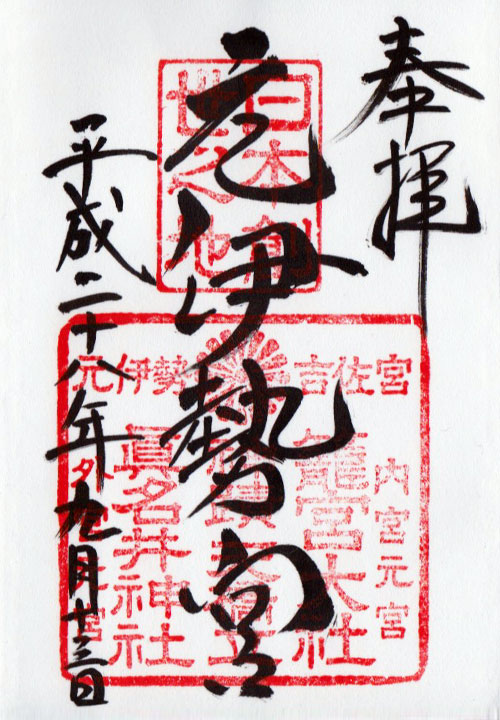 奉拝
日本創
世之地
元伊勢宮
吉佐宮
元伊勢
内宮元宮
籠宮大社
眞名井神社
平成二十八年九月十三日